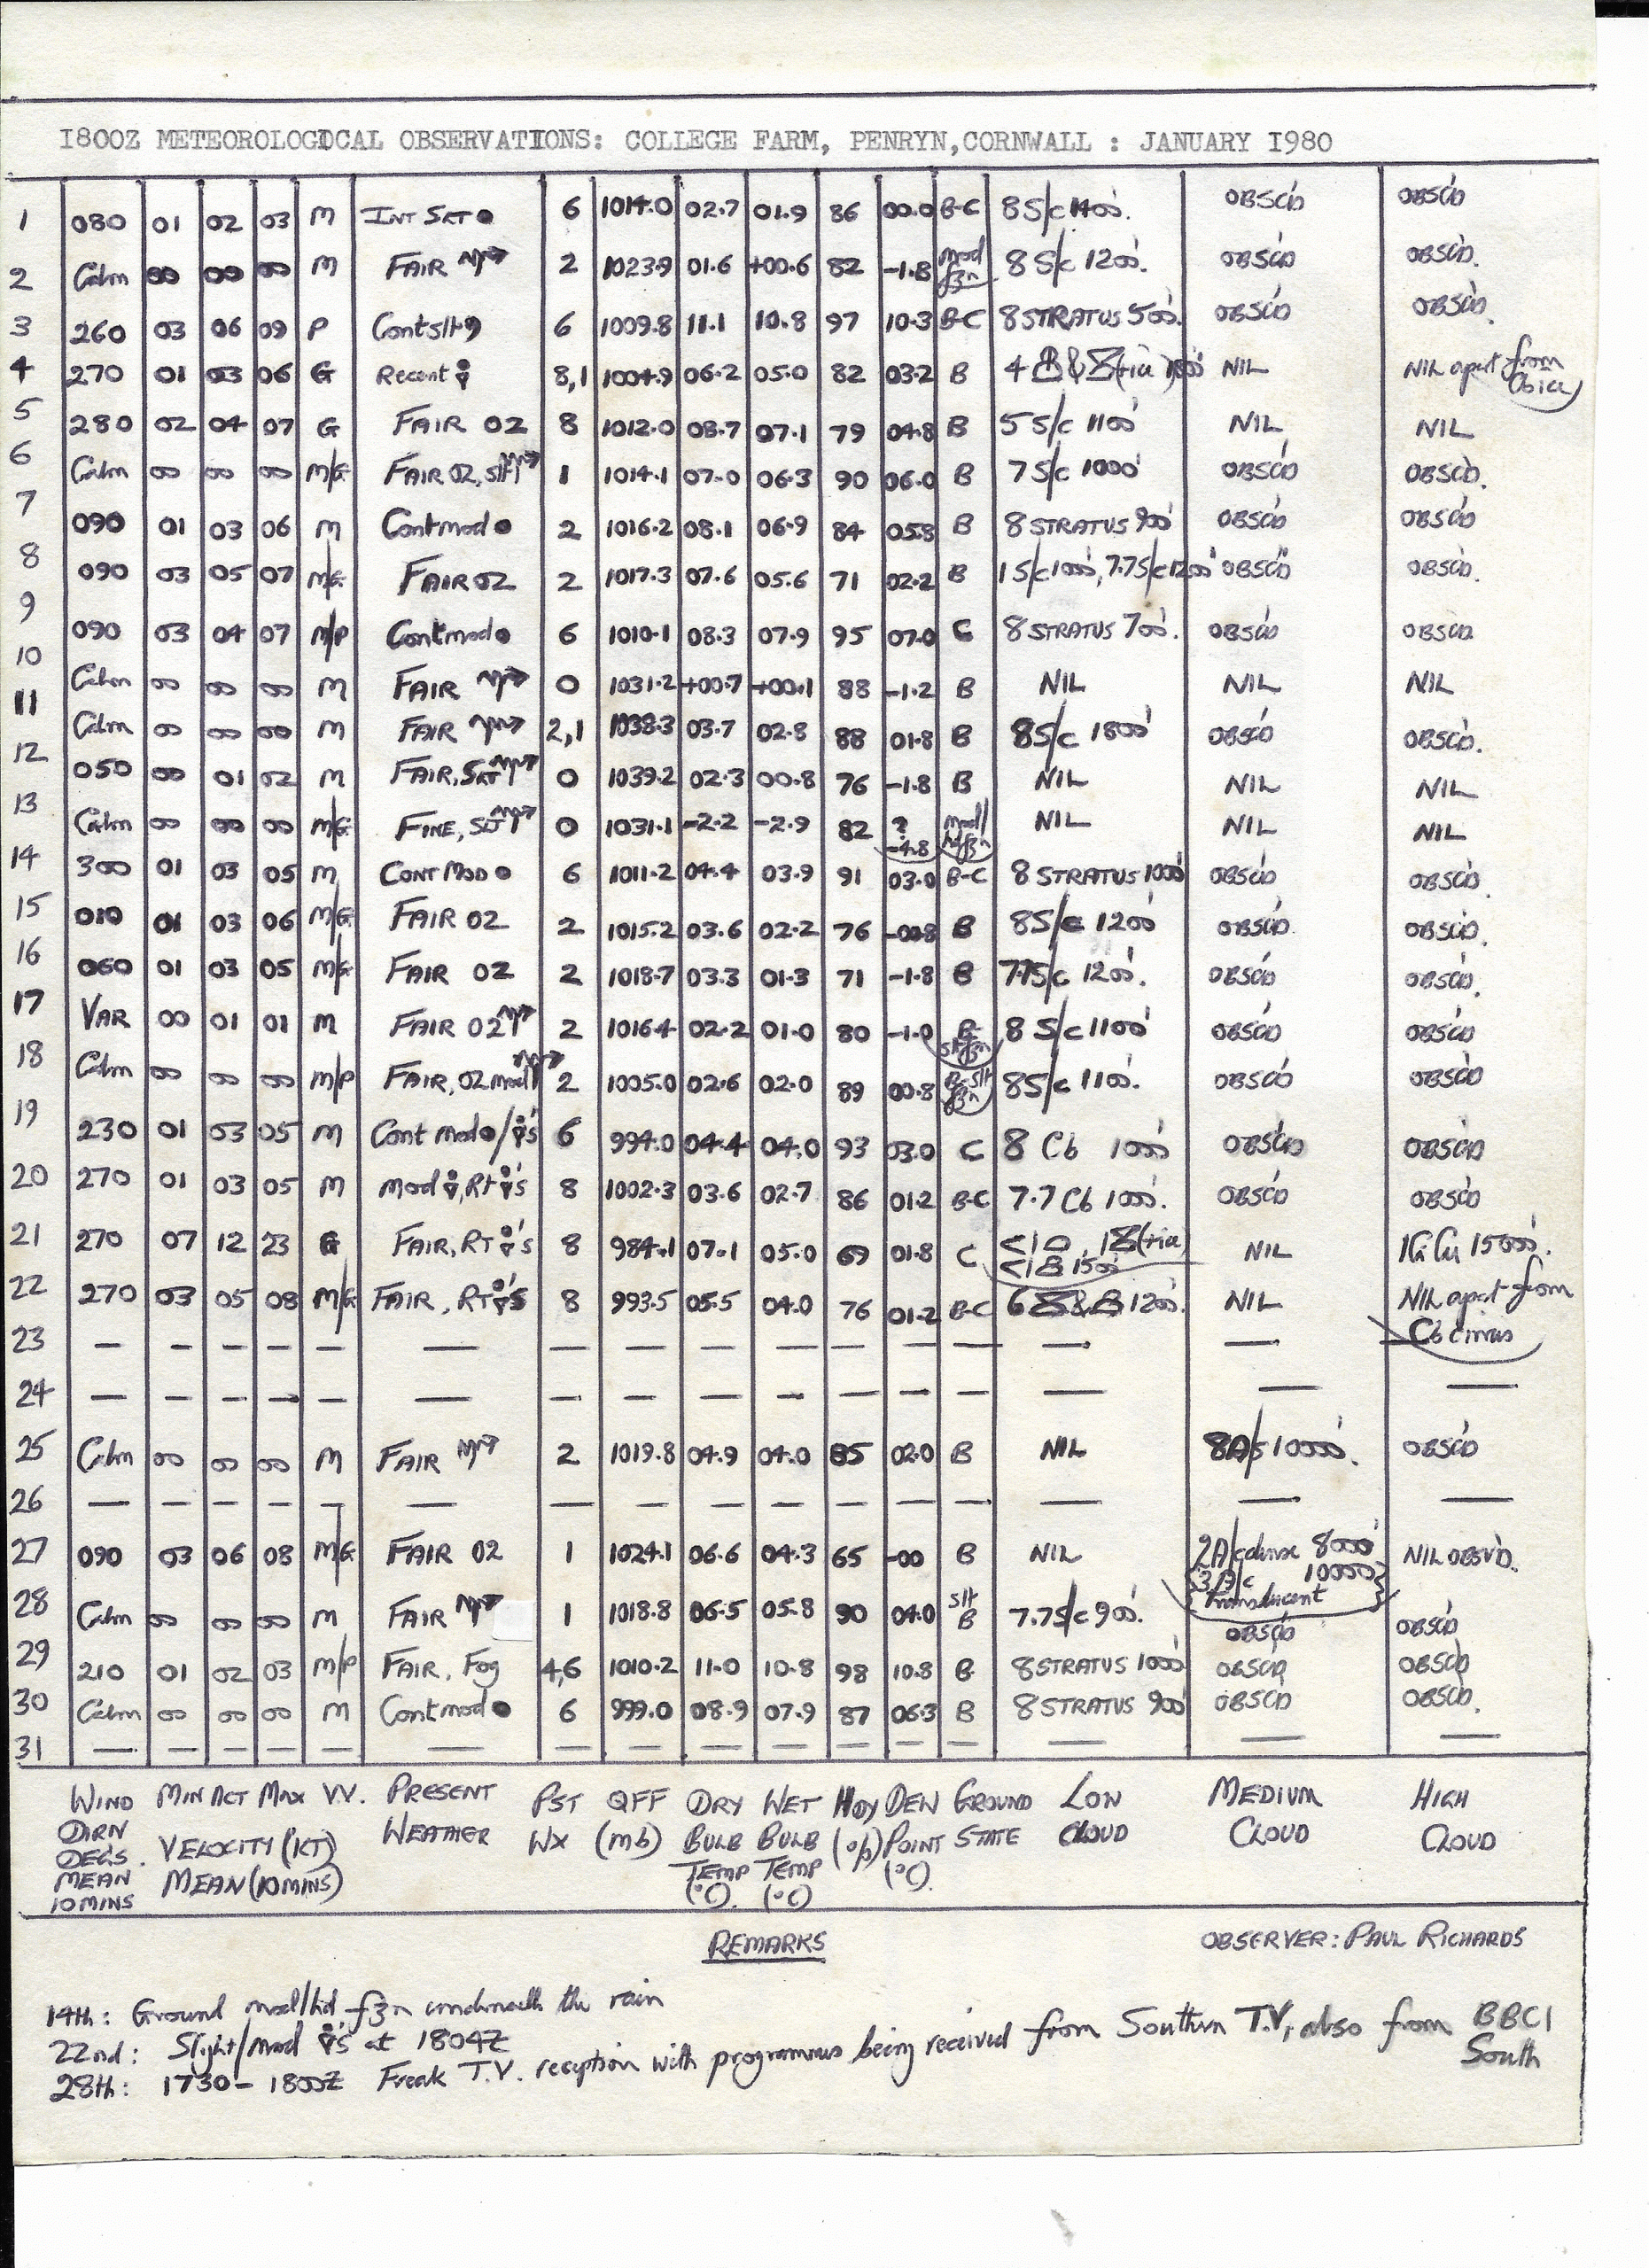 1800Z METEOROLOGICAL OBSERVATIONS: COLLEGE FARM, PENRYN, CORNWALL : JANUARY 1980
1 080 01 02 03 M INT SLT ● 6 1014.0 02.7 01.9 86 00.0 B-C 8 S/c 1400'. OBSC'D OBSC'D
2 Calm 00 00 00 M FAIR 2 1023.9 01.6 +00.6 82 -1.8 mod fzn 8 S/c 1200'. OBSC'D OBSC'D.
3 260 03 06 09 P Cont slt 6 1009.8 11.1 10.8 97 10.3 B-C 8 STRATUS 500'. OBSC'D OBSC'D.
4 270 01 03 06 G Recent 8,1 1004.9 06.2 05.0 82 03.2 B 4 & (+ia) 1800' NIL NIL apart from Cb ia
5 280 02 04 07 G FAIR 02 8 1012.0 08.7 07.1 79 04.8 B 5 S/c 1100' NIL NIL
6 Calm 00 00 00 M/G FAIR 02, Slt 1 1014.1 07.0 06.3 90 06.0 B 7 S/c 1000' OBSC'D OBSC'D.
7 090 01 03 06 M Cont mod ● 2 1016.2 08.1 06.9 84 05.8 B 8 STRATUS 900' OBSC'D OBSC'D
8 090 03 05 07 M/G FAIR 02 2 1017.3 07.6 05.6 71 02.2 B 1 S/c 1000', 7.7 S/c 1200' OBSC'D OBSC'D.
9 090 03 04 07 M/P Cont mod ● 6 1010.1 08.3 07.9 95 07.0 C 8 STRATUS 700'. OBSC'D OBSC'D
10 Calm 00 00 00 M FAIR 0 1031.2 +00.7 +00.1 88 -1.2 B NIL NIL NIL
11 Calm 00 00 00 M FAIR 2,1 1038.3 03.7 02.8 88 01.8 B 8 S/c 1800' OBSC'D OBSC'D.
12 050 00 01 02 M FAIR, SLT 0 1039.2 02.3 00.8 76 -1.8 B NIL NIL NIL
13 Calm 00 00 00 M/G FINE, SLT 0 1031.1 -2.2 -2.9 82 ? -4.8 mod/hd fzn NIL NIL NIL
14 300 01 03 05 M CONT MOD ● 6 1011.2 04.4 03.9 91 03.0 B-C 8 STRATUS 1000' OBSC'D OBSC'D.
15 010 01 03 06 M/G FAIR 02 2 1015.2 03.6 02.2 76 -00.8 B 8 S/c 1200' OBSC'D. OBSC'D.
16 060 01 03 05 M/G FAIR 02 2 1018.7 03.3 01.3 71 -1.8 B 7.7 S/c 1200'. OBSC'D OBSC'D.
17 VAR 00 01 01 M FAIR 02 2 1016.4 02.2 01.0 80 -1.0 B- slt fzn 8 S/c 1100' OBSC'D OBSC'D
18 Calm 00 00 00 M/P FAIR, 02 mod 2 1005.0 02.6 02.0 89 00.8 B-slt fzn 8 S/c 1100'. OBSC'D OBSC'D
19 230 01 03 05 M Cont mod ●/ 's 6 994.0 04.4 04.0 93 03.0 C 8 Cb 1000' OBSC'D OBSC'D
20 270 01 03 05 M Mod , Rt 's 8 1002.3 03.6 02.7 86 01.2 B-C 7.7 Cb 1000'. OBSC'D OBSC'D
21 270 07 12 23 G FAIR, RT 's 8 984.1 07.1 05.0 69 01.8 C <1 , 1 (+ia) <1 1500' NIL 1 Ci 15000'.
22 270 03 05 08 M/G FAIR, RT 's 8 993.5 05.5 04.0 76 01.2 B-C 6 & 1200'. NIL NIL apart from Cb cirrus
23 — — — — — — — — — — — — — — — —
24 — — — — — — — — — — — — — — — —
25 Calm 00 00 00 M FAIR 2 1019.8 04.9 04.0 85 02.0 B NIL 8 A/s 10000'. OBSC'D
26 — — — — — — — — — — — — — — — —
27 090 03 06 08 M/G FAIR 02 1 1024.1 06.6 04.3 65 -00 B NIL 2 A/c dense 8000' 3 A/c 10000' translucent NIL OBSV'D.
28 Calm 00 00 00 M FAIR 1 1018.8 06.5 05.8 90 04.0 slt B 7.7 S/c 900'. OBSC'D OBSC'D
29 210 01 02 03 M/P FAIR, Fog 4,6 1010.2 11.0 10.8 98 10.8 B 8 STRATUS 1000' OBSC'D OBSC'D
30 Calm 00 00 00 M Cont mod ● 6 999.0 08.9 07.9 87 06.3 B 8 STRATUS 900' OBSC'D OBSC'D.
31 — — — — — — — — — — — — — — — —
WIND MIN ACT MAX V.V. PRESENT PST QFF DRY WET HDY DEW GROUND LOW MEDIUM HIGH
DIRN VELOCITY (KT) WEATHER WX (mb) BULB BULB (%) POINT STATE CLOUD CLOUD CLOUD
DEGS. MEAN (10 MINS) TEMP TEMP (°C).
MEAN (°C). (°C)
10 MINS
REMARKS OBSERVER: PAUL RICHARDS
14th: Ground mod/hd fzn underneath the rain
22nd: Slight/mod 's at 1804Z
28th: 1730 - 1800Z Freak T.V. reception with programmes being received from Southern T.V, also from BBC1 South